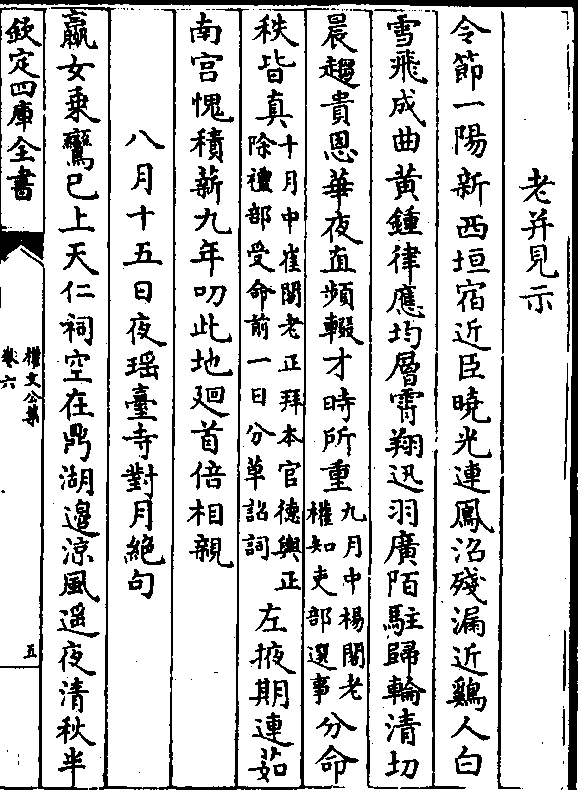 老并見示
令節一陽新西垣宿近臣曉光連鳳沼殘漏近鷄人白
雪飛成曲黃鍾律應均層霄翔迅羽廣陌駐歸輪清切
晨趨貴恩華夜直頻輟才時所重九月中楊閣老權知吏部選事分命
秩皆真十月中崔閣老正拜本官德輿正除禮部受命前一日分草詔詞左掖期連茹
南宮愧積薪九年叨此地廻首倍相親
八月十五日夜瑶臺寺對月絶句
嬴女乘鸞已上天仁祠空在鼎湖邊涼風遥夜清秋半
欽定四庫全書
權文公集
卷六
五